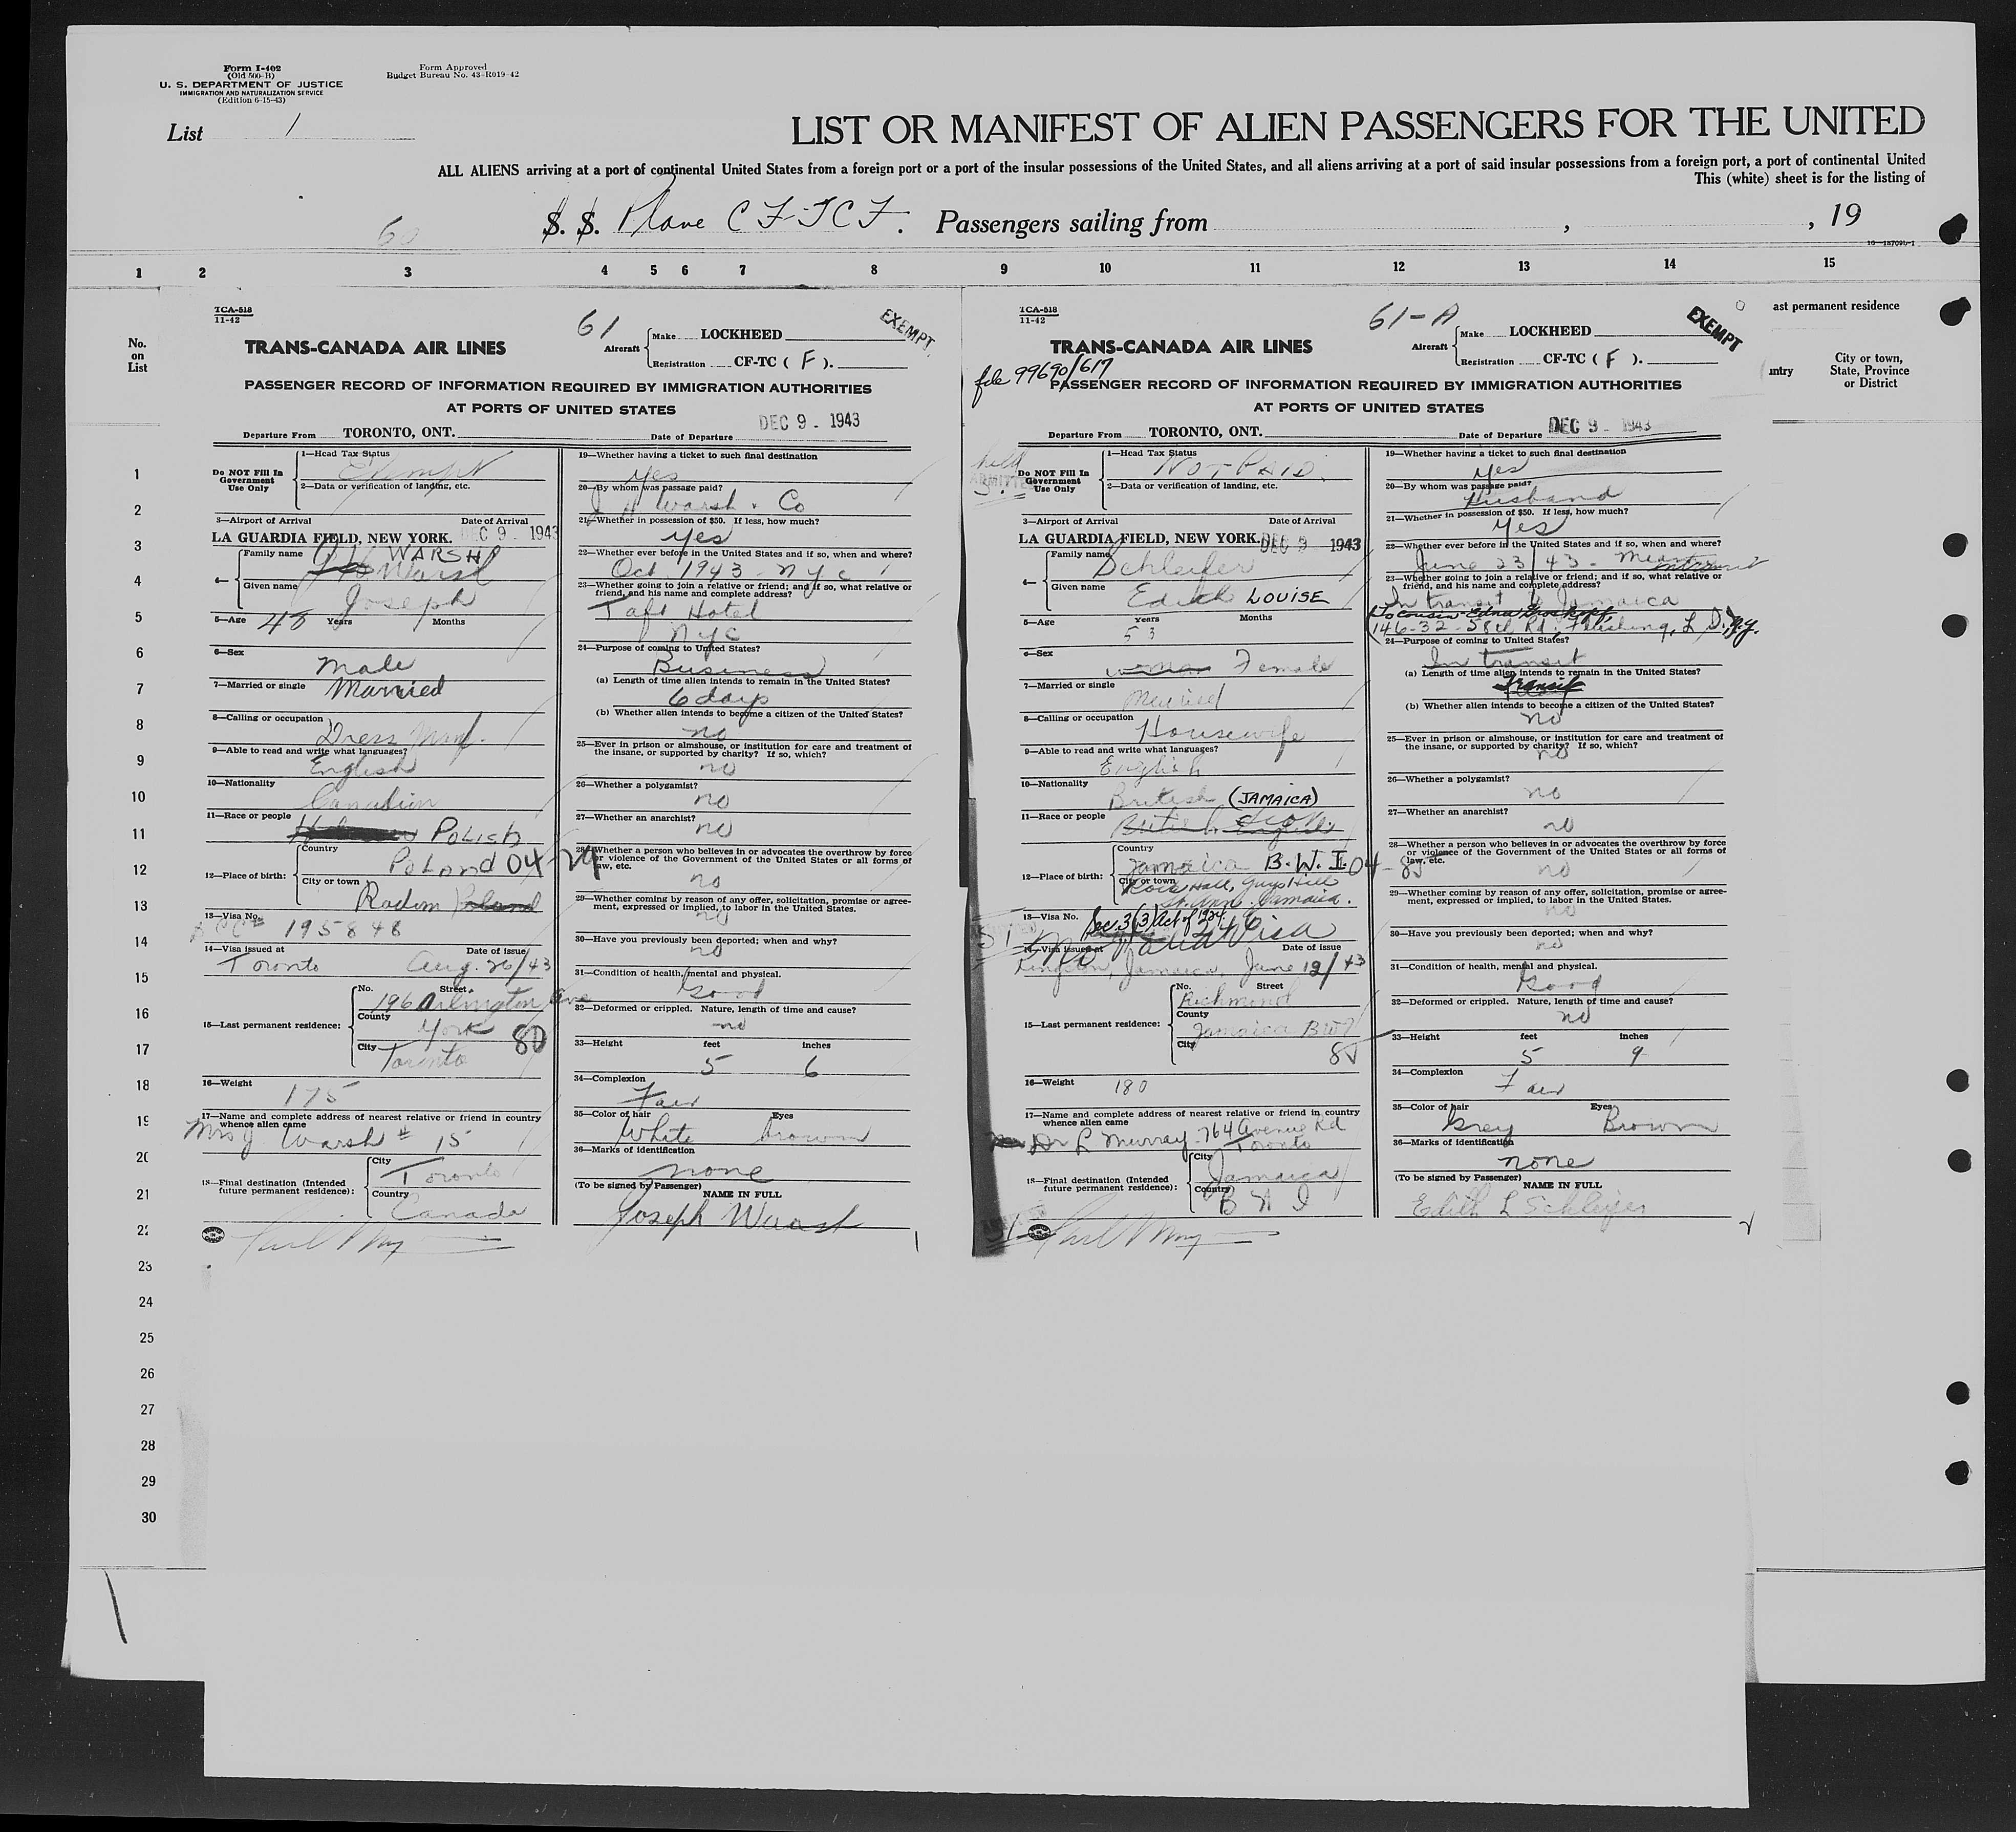 Form I-402
(Old 500-B)
U. S. DEPARTMENT OF JUSTICE
IMMIGRATION AND NATURALIZATION SERVICE
(Edition 6-15-43)
Form Approved
Budget Bureau No. 43-R019-42
List 1
LIST OR MANIFEST OF ALIEN PASSENGERS FOR THE UNITED
ALL ALIENS arriving at a port of continental United States from a foreign port or a port of the insular possessions of the United States, and all aliens arriving at a port of said insular possessions from a foreign port, a port of continental United
This (white) sheet is for the listing of
60
S. S. Plane CF-TCF. Passengers sailing from , , 19
16—18709b-1
1 2 3 4 5 6 7 8 9 10 11 12 13 14 15
No.
on
List
1
2
3
4
5
6
7
8
9
10
11
12
13
14
15
16
17
18
19
20
21
22
23
24
25
26
27
28
29
30
TCA-518
11-42
61
EXEMPT
TRANS-CANADA AIR LINES
Aircraft
Make LOCKHEED
Registration CF-TC ( F ).
PASSENGER RECORD OF INFORMATION REQUIRED BY IMMIGRATION AUTHORITIES
AT PORTS OF UNITED STATES
DEC 9 - 1943
Departure From TORONTO, ONT. Date of Departure
Do NOT Fill In
Government
Use Only
1—Head Tax Status
Exempt
2—Data or verification of landing, etc.
3—Airport of Arrival Date of Arrival
LA GUARDIA FIELD, NEW YORK. DEC 9 - 1943
4—
Family name WARSH
Warsh
Given name Joseph
5—Age 48 Years Months
6—Sex
Male
7—Married or single Married
8—Calling or occupation
Dress Manf.
9—Able to read and write what languages?
English
10—Nationality
Canadian
11—Race or people
Polish
12—Place of birth:
Country
Poland 04-29
City or town
Radom Poland
13—Visa No.
195848
14—Visa issued at Date of issue
Toronto Aug. 26/43
15—Last permanent residence:
No. Street
196 Arlington Ave
County
York
City
Toronto
80
16—Weight
175
17—Name and complete address of nearest relative or friend in country
whence alien came
Mrs J. Warsh # 15
18—Final destination (Intended
future permanent residence):
City
Toronto
Country
Canada
19—Whether having a ticket to such final destination
yes
20—By whom was passage paid?
Warsh & Co
21—Whether in possession of $50. If less, how much?
yes
22—Whether ever before in the United States and if so, when and where?
Oct 1943 - NYC
23—Whether going to join a relative or friend; and if so, what relative or
friend, and his name and complete address?
Taft Hotel
NYC
24—Purpose of coming to United States?
Business
(a) Length of time alien intends to remain in the United States?
6 days
(b) Whether alien intends to become a citizen of the United States?
no
25—Ever in prison or almshouse, or institution for care and treatment of
the insane, or supported by charity? If so, which?
no
26—Whether a polygamist?
no
27—Whether an anarchist?
no
28—Whether a person who believes in or advocates the overthrow by force
or violence of the Government of the United States or all forms of
law, etc.
no
29—Whether coming by reason of any offer, solicitation, promise or agree-
ment, expressed or implied, to labor in the United States.
no
30—Have you previously been deported; when and why?
no
31—Condition of health, mental and physical.
Good
32—Deformed or crippled. Nature, length of time and cause?
no
33—Height feet inches
5 6
34—Complexion
Fair
35—Color of hair Eyes
White brown
36—Marks of identification
none
(To be signed by Passenger)
NAME IN FULL
Joseph Warsh
TCA-518
11-42
61-A
EXEMPT
TRANS-CANADA AIR LINES
file 99690/617
Aircraft
Make LOCKHEED
Registration CF-TC ( F ).
PASSENGER RECORD OF INFORMATION REQUIRED BY IMMIGRATION AUTHORITIES
AT PORTS OF UNITED STATES
DEC 9 - 1943
Departure From TORONTO, ONT. Date of Departure
held
ADMITTED
Do NOT Fill In
Government
Use Only
1—Head Tax Status
NOT PAID
2—Data or verification of landing, etc.
3—Airport of Arrival Date of Arrival
LA GUARDIA FIELD, NEW YORK. DEC 9 1943
4—
Family name
Schleifer
Given name
Edith LOUISE
5—Age Years Months
53
6—Sex
Female
7—Married or single
Married
8—Calling or occupation
Housewife
9—Able to read and write what languages?
English
10—Nationality
British (JAMAICA)
11—Race or people
British English
12—Place of birth:
Country
Jamaica B.W.I. 04-85
City or town
Hall, Guys Hill
St. Ann. Jamaica.
13—Visa No. Sec. 3(3) Act of 1924.
No Valid Visa
14—Visa issued at Date of issue
Kingston, Jamaica, June 12/43
15—Last permanent residence:
No. Street
Richmond
County
Jamaica BWI
City
85
16—Weight
180
17—Name and complete address of nearest relative or friend in country
whence alien came
Dr L Murray - 764 Avenue Rd
Toronto
18—Final destination (Intended
future permanent residence):
City
Jamaica
Country
B W I
19—Whether having a ticket to such final destination
yes
20—By whom was passage paid?
Husband
21—Whether in possession of $50. If less, how much?
yes
22—Whether ever before in the United States and if so, when and where?
June 23/43 - Miami
23—Whether going to join a relative or friend; and if so, what relative or
friend, and his name and complete address?
In transit to Jamaica
To cousin Edna
146-32-58th Rd. Flushing, L.I., N.Y.
24—Purpose of coming to United States?
In transit
(a) Length of time alien intends to remain in the United States?
Transit
(b) Whether alien intends to become a citizen of the United States?
no
25—Ever in prison or almshouse, or institution for care and treatment of
the insane, or supported by charity? If so, which?
no
26—Whether a polygamist?
no
27—Whether an anarchist?
no
28—Whether a person who believes in or advocates the overthrow by force
or violence of the Government of the United States or all forms of
law, etc.
no
29—Whether coming by reason of any offer, solicitation, promise or agree-
ment, expressed or implied, to labor in the United States.
no
30—Have you previously been deported; when and why?
no
31—Condition of health, mental and physical.
Good
32—Deformed or crippled. Nature, length of time and cause?
no
33—Height feet inches
5 9
34—Complexion
Fair
35—Color of hair Eyes
Grey Brown
36—Marks of identification
none
(To be signed by Passenger)
NAME IN FULL
Edith L Schleifer
ast permanent residence
ntry
City or town,
State, Province
or District